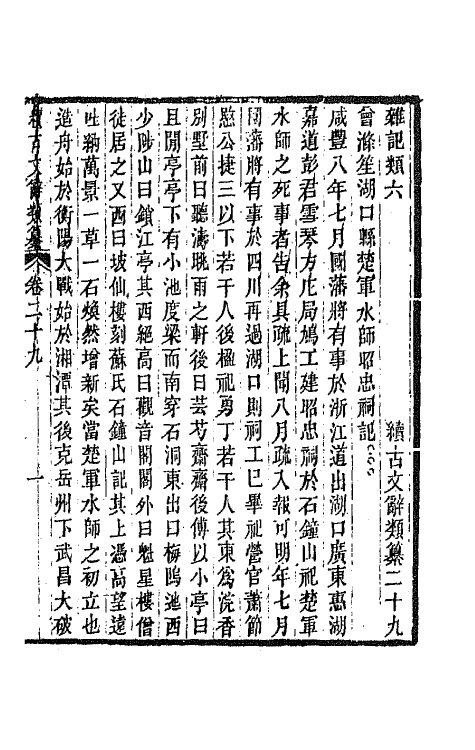 雜記類六　續古文辭類纂二十九
曾滌笙湖口縣楚軍水師昭忠祠記
咸豐八年七月國藩將有事於浙江道出湖口廣東惠湖
嘉道彭君雪琴方庀局鳩工建昭忠祠於石鐘山祀楚軍
水師之死事者告余具疏上聞八月疏入報可明年七月
國藩將有事於四川再過湖口則祠工已畢祀營官蕭節
愍公捷三以下若干人後楹祀勇丁若干人其東爲浣香
別墅前曰聽濤眺雨之軒後曰芸芍齋齋後傅以小亭曰
且閒亭亭下有小池度梁而南穿石洞東出口梅隖池西
少陟山曰鎖江亭其西絕高曰觀音閣閣外曰魁星樓僧
徒居之又西曰坡仙樓刻蘇氏石鐘山記其上憑高望遠
吐納萬景一草一石煥然增新矣當楚軍水師之初立也
造舟始於衡陽大戰始於湘潭其後克岳州下武昌大破
續古文辭類纂　卷二十九　一